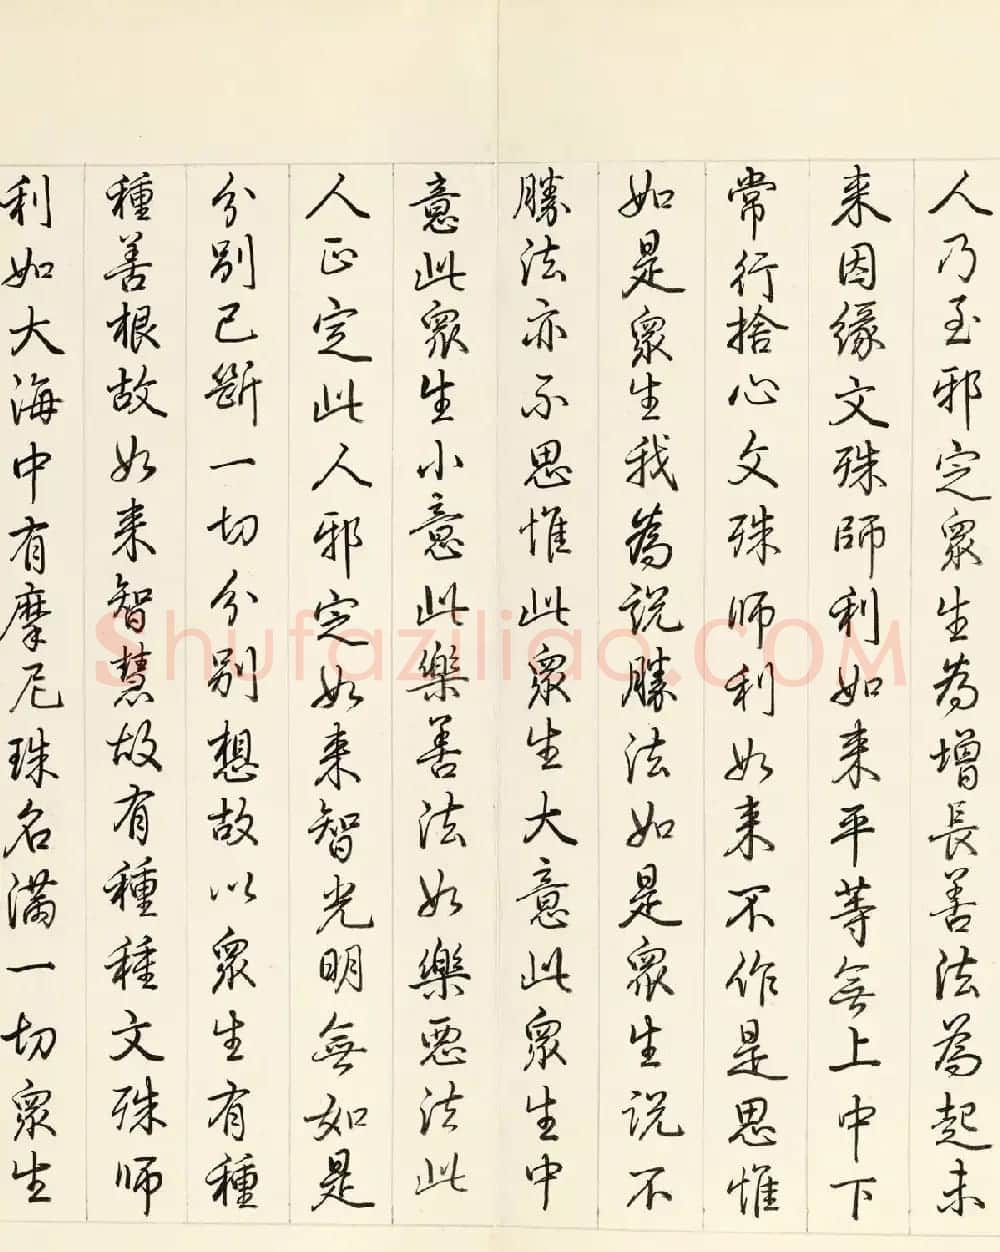 人乃至邪定衆生為增長善法為起未
来因緣文殊師利如来平等無上中下
常行捨心文殊师利如来不作是思惟
如是衆生我為说勝法如是衆生说不
勝法亦不思惟此衆生大意此衆生中
意此衆生小意此樂善法如樂惡法此
人正定此人邪定如来智光明無如是
分别已斷一切分别想故以衆生有種
種善根故如来智慧故有種種文殊师
利如大海中有摩尼珠名滿一切衆生
Shufaziliao.COM